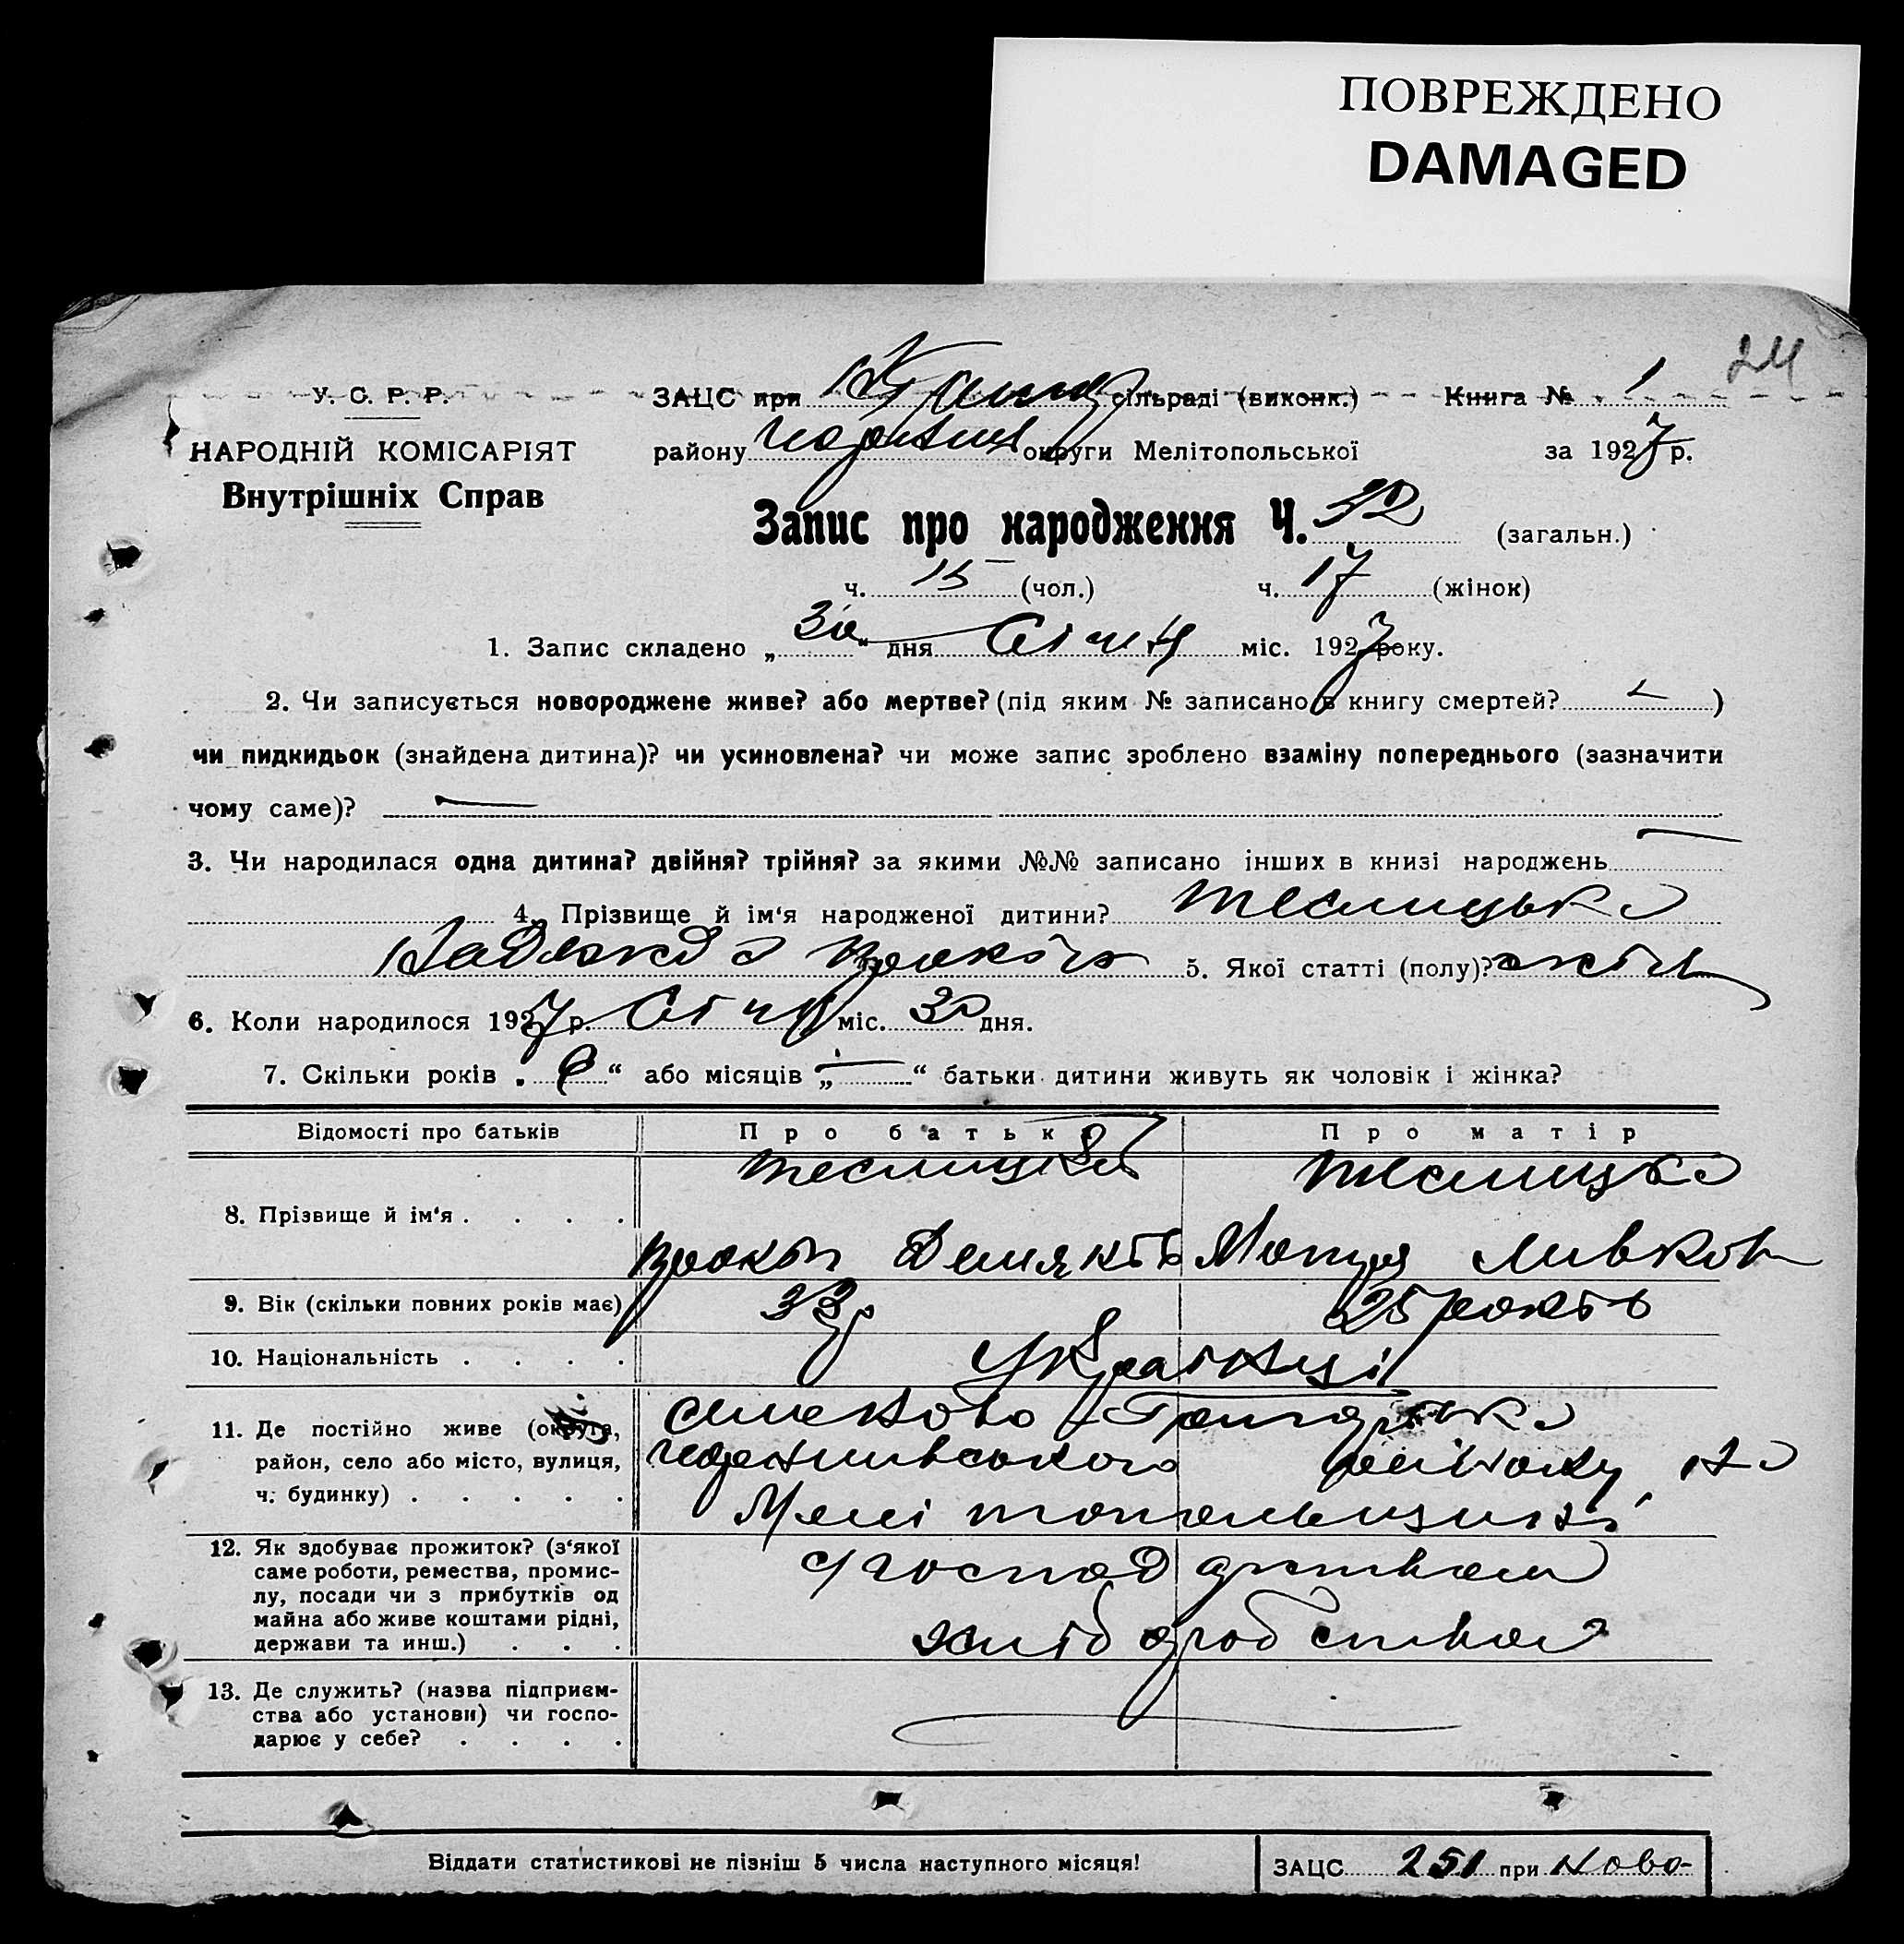 ПОВРЕЖДЕНО
DAMAGED
24
У. С. Р. Р.
НАРОДНІЙ КОМІСАРІЯТ
Внутрішніх Справ
ЗАЦС при сільраді (виконк.) Книга № 1
району округи Мелітопольської за 1927 р.
Запис про народження Ч. 32 (загальн.)
ч. 15 (чол.) ч. 17 (жінок)
1. Запис складено „30“ дня Січня міс. 1927 року.
2. Чи записується новороджене живе? або мертве? (під яким № записано в книгу смертей? )
чи пидкидьок (знайдена дитина)? чи усиновлена? чи може запис зроблено взаміну попереднього (зазначити
чому саме)? —
3. Чи народилася одна дитина? двійня? трійня? за якими №№ записано інших в книзі народжень —
4. Прізвище й ім‘я народженої дитини? Теслицька
Надежда 5. Якої статті (полу)? жін
6. Коли народилося 1927 р. Січня міс. 30 дня.
7. Скільки років „ “ або місяців „—“ батьки дитини живуть як чоловік і жінка?
Відомості про батьків Про батька Про матір
Теслицький Теслицька
8. Прізвище й ім‘я . . . .
Прокіп Мотря
9. Вік (скільки повних років має) 33 р 25 років
10. Національність . . . . Українці
11. Де постійно живе (округа,
район, село або місто, вулиця,
ч. будинку) . . . . .
району, на
Мелітопольщині
12. Як здобуває прожиток? (з‘якої
саме роботи, ремества, промис-
лу, посади чи з прибутків од
майна або живе коштами рідні,
держави та инш.) . . .
господарством
хліборобством
13. Де служить? (назва підприєм-
ства або установи) чи госпо-
дарює у себе? . . . .
Віддати статистикові не пізніш 5 числа наступного місяця!
ЗАЦС 251 при Ново-